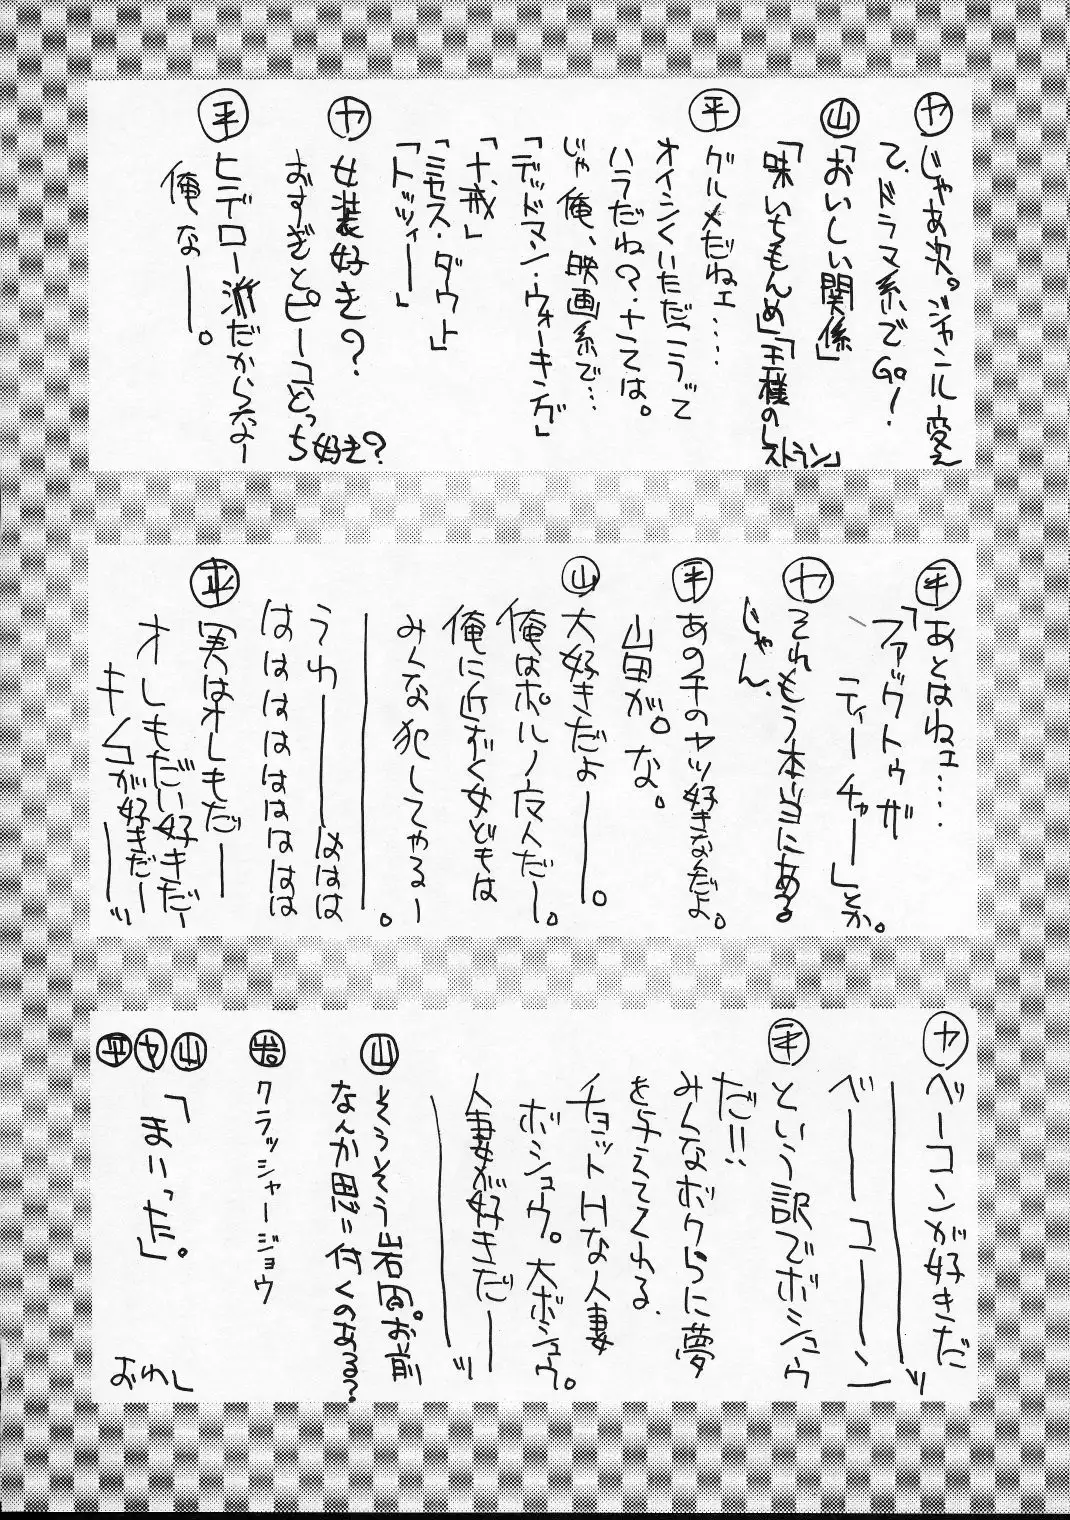 ヤ じゃあ次。ジャンル変え
て、ドラマ系でGo!
山 「おいしい関係」
「味いちもんめ」「王様のレストラン」
平 グルメだねェ……
オイシくいただこうって
ハラだね?さては。
じゃ俺、映画系で…
「デッドマン・ウォーキング」
「十戒」
「ミセス・ダウト」
「トッツィー」
ヤ 女装好き?
おすぎとピーコどっち好き?
平 ヒデロー派だからなー
俺なー。
平 あとはねェ……
「ファックトゥザ
ティーチャー」とか。
ヤ それもう本当にある
じゃん.
平 あの手のヤツ好きなんだよ。
山田が。な。
山 大好きだよー。
俺はポルノ魔人だー。
俺に近ずく女どもは
みんな犯してやるー
ー。
うわーははは
はははははははは
平 実はオレもだー
オレもだい好きだー
キムコが好きだー
ーッ
ヤ ベーコンが好きだ
ーッ
ベーコーンー
平 という訳でボシュウ
だ!!
みんなボクらに夢
を与えてくれる.
チョットHな人妻
ボシュウ。大ボシュウ。
人妻が好きだー
ーッ
山 そうそう岩田。お前
なんか思い付くのある?
岩 クラッシャージョウ
山 ヤ 平
「まいった」。
おわし